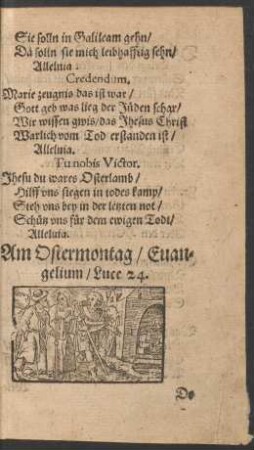 Sie solln in Galileam gehn/
Da solln sie mich leibhafftig sehn/
Alleluia.
Credendum.
Marie zeugnis das ist war/
Gott geb was lieg der Jüden schar/
Wir wissen gwis/das Jhesus Christ
Warlich vom Tod erstanden ist/
Alleluia.
Tu nobis Victor.
Jhesu du wares Osterlamb/
Hilff vns siegen in todes kampf/
Steh vns bey in der letzten not/
Schütz vns für dem ewigen Todt/
Alleluia.
Am Ostermontag/Euan-
gelium/Luce 24.
De